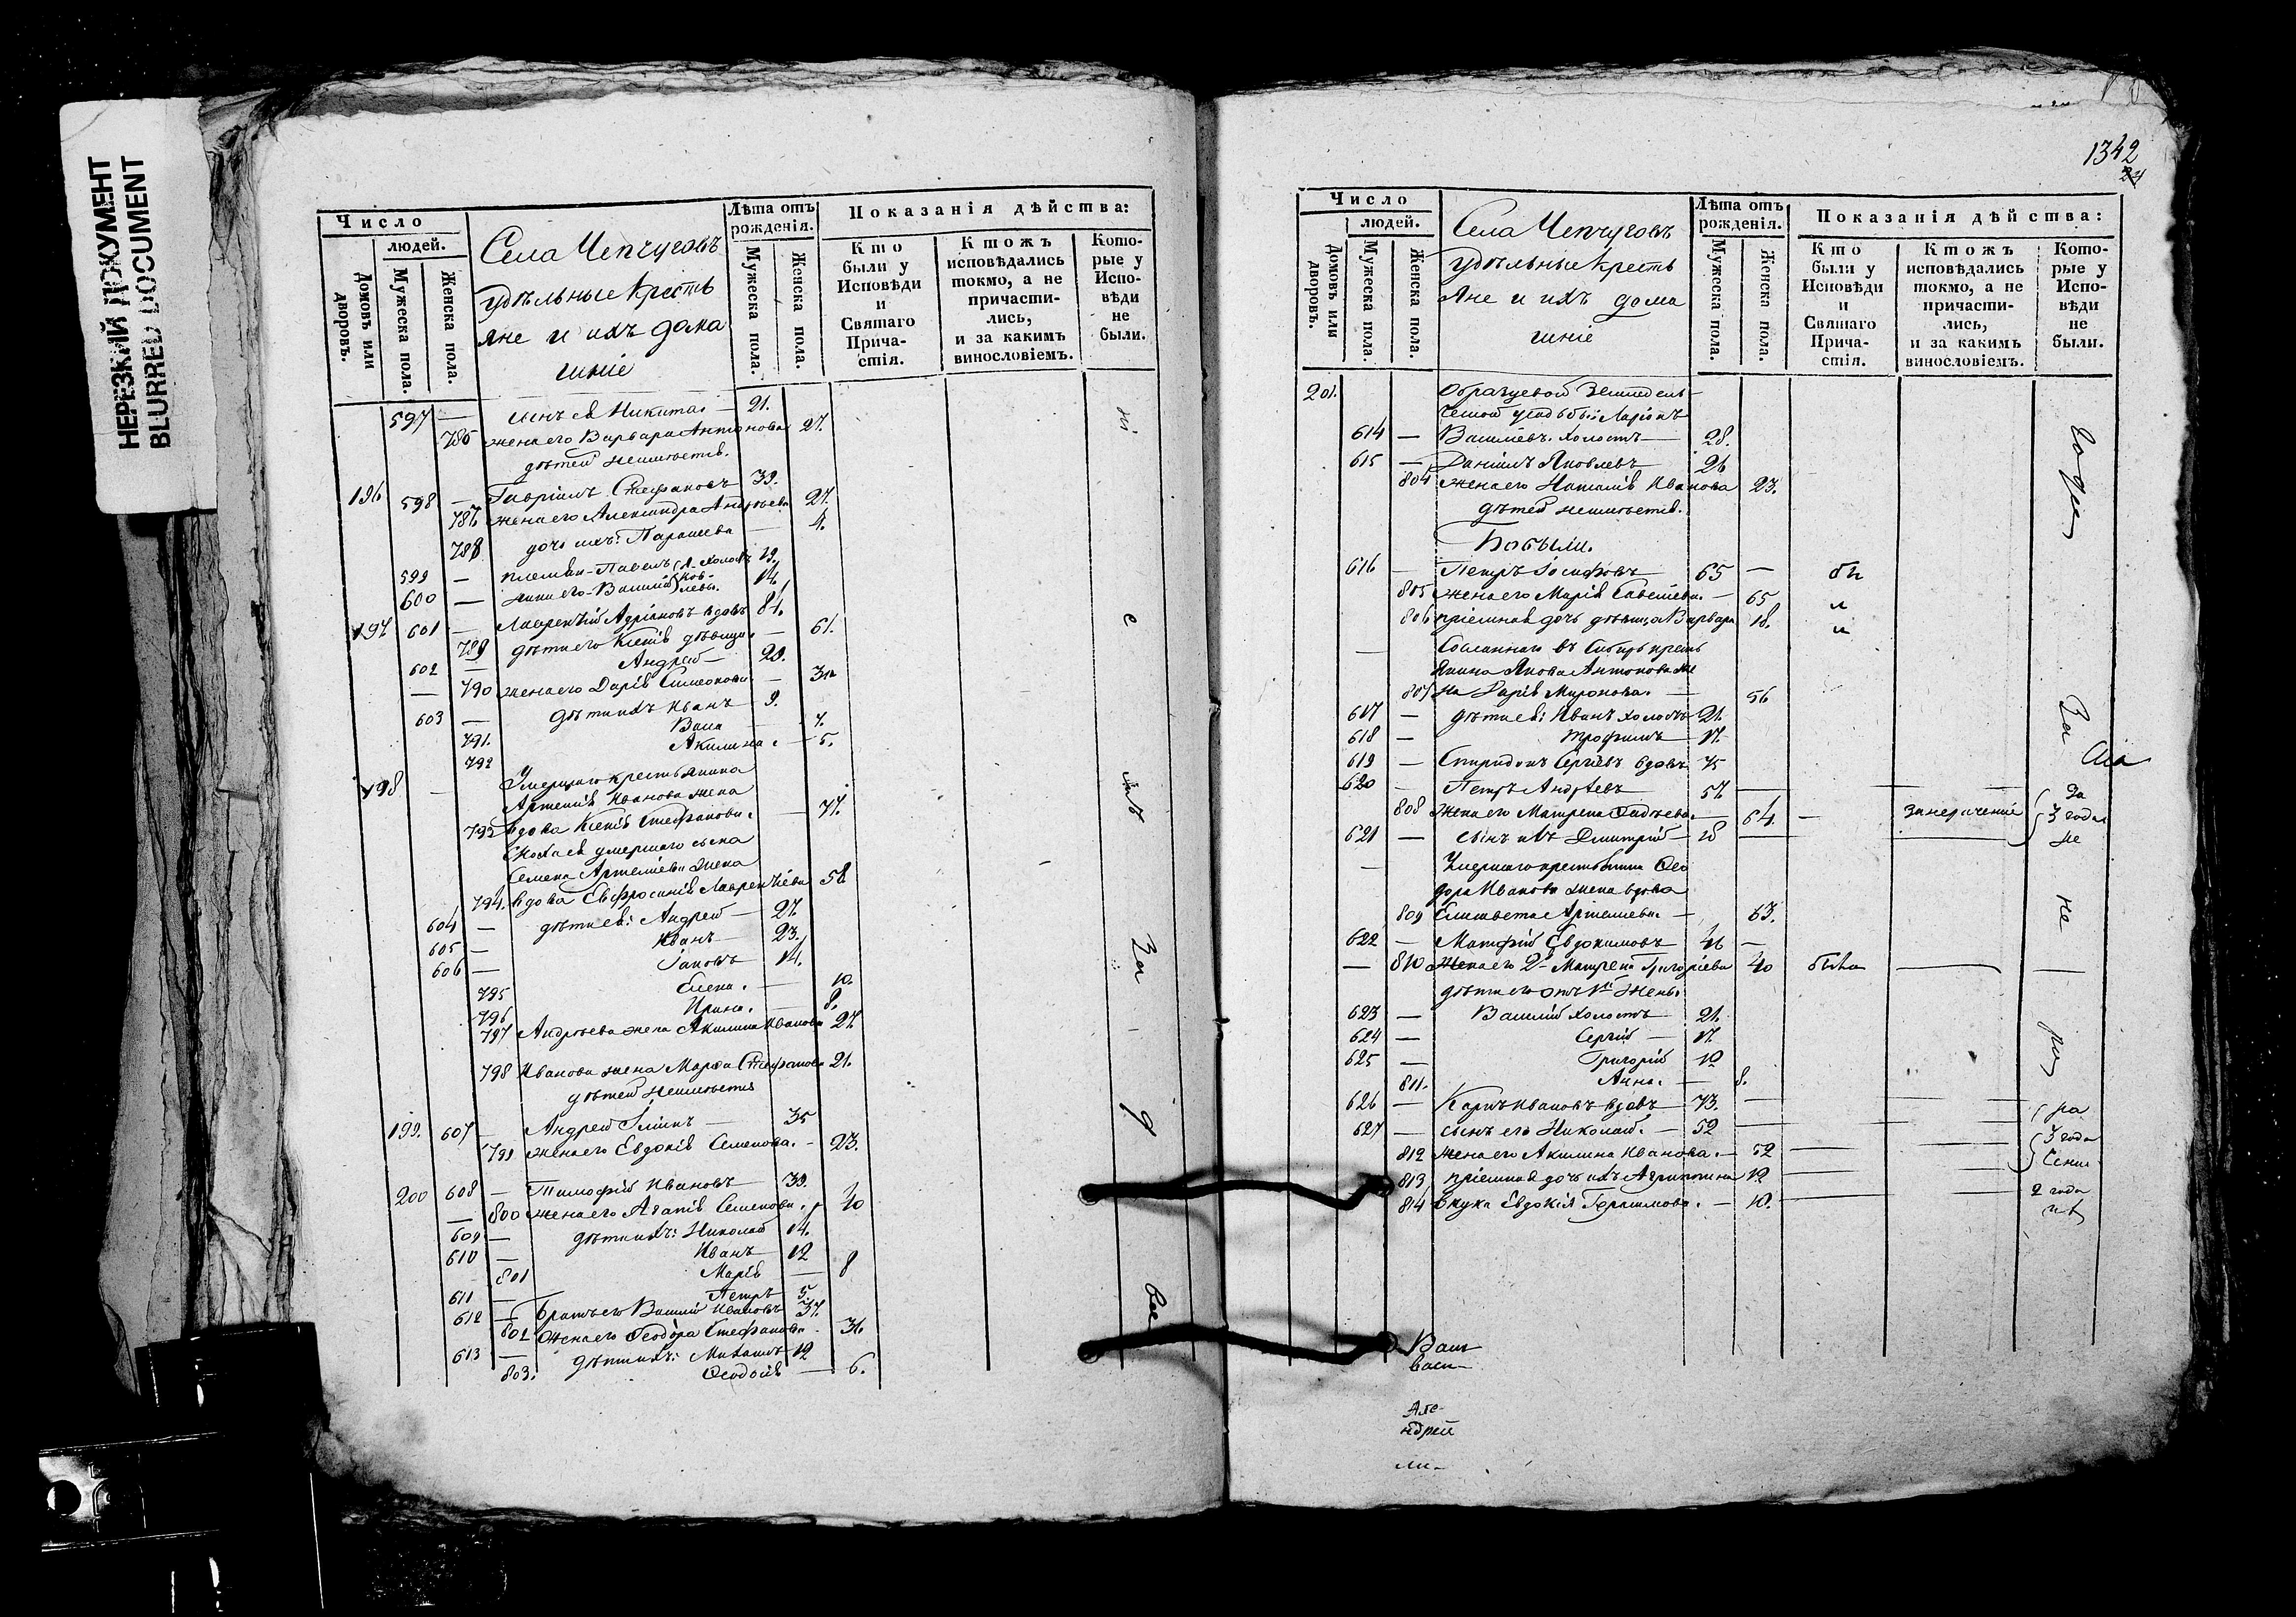 НЕРЕЗКИЙ ДОКУМЕНТ
BLURRED DOCUMENT
Число
людей.
Домовъ или дворовъ.
Мужеска пола.
Женска пола.
Села Чепчуговъ
удѣльные кресть
яне и ихъ дома
шніе
Лѣта отъ рожденія.
Мужеска пола.
Женска пола.
Показанія дѣйства:
Кто были у Исповѣди и Святаго Причастія.
Ктожъ исповѣдались токмо, а не причастились, и за какимъ винословіемъ.
Которые у Исповѣди не были.
597 — сынъ ея Никита — 21.
786 жена его Варвара Антонова 27.
дѣтей неимѣетъ.
196 598 — Гавріилъ Стефановъ 39.
787 жена его Александра Андреева 27.
788 дочь ихъ: Параскева — 4.
599 — племян- Павелъ Холостъ 19.
600 — ники его Василій 14.
197 601 — Лаврентій Адріановъ вдовъ 81.
789 дѣти его Ксенія дѣвица — 61.
602 — Андрей — 29.
— 790 жена его Дарія Симеонова — 30
603 — дѣти ихъ Иванъ — 9.
791. Васса — 7.
792 Акилина. — 5.
198 — Умершаго крестьянина
Артемія Иванова жена
793 вдова Ксенія Стефанова. — 77.
Сноха ея умершаго сына
Семена Артеміева жена
794. вдова Евфросинія Лаврентіева 58
604 — дѣти ея: Андрей — 27.
605 — Иванъ — 23.
606 — Іаковъ 14.
795 Елена. — 10.
796 Ирина. — 8.
797 Андреева жена Акилина Иванова 27
798 Иванова жена Марѳа Стефанова 21.
дѣтей неимѣетъ
199. 607 — Андрей Ильинъ — 35
799 жена его Евдокія Семенова. — 23.
200 608 — Тимофей Ивановъ 39.
— 800 жена его Агапія Семенова. 40
609 — дѣти ихъ: Николай 14.
610 — Иванъ 12
801 Марія — 8
611 — Петръ 5.
612 — братъ его Василій Ивановъ 37.
802 жена его Ѳеодора Стефанова. 31.
613 — дѣти ихъ: Михаилъ 12
803. Ѳеодосія — 6.
1342
Число
людей.
Домовъ или дворовъ.
Мужеска пола.
Женска пола.
Села Чепчуговъ
удѣльные кресть
яне и ихъ дома
шніе
Лѣта отъ рожденія.
Мужеска пола.
Женска пола.
Показанія дѣйства:
Кто были у Исповѣди и Святаго Причастія.
Ктожъ исповѣдались токмо, а не причастились, и за какимъ винословіемъ.
Которые у Исповѣди не были.
201. Образцевой Земледѣль-
ческой усадьбы: Ларіонъ
614 — Василіевъ. Холостъ — 28.
615 — Даніилъ Яковлевъ 26
804 жена его Наталія Иванова 23.
дѣтей неимѣетъ.
Бобыли.
616 — Петръ Іосифовъ 65 — бы
805 жена его Марія Савельева. — 65
806 пріемная дочь дѣвица Варвара 18.
— Сосланнаго въ Сибирь кресть
янина Якова Антонова же
807 на Дарія Миронова. — 56
617 — дѣти ея: Иванъ холостъ 21.
618 — Трофимъ 17.
619 — Спиридонъ Сергѣевъ вдовъ 75
620 — Петръ Андреевъ 57
808 жена его Матрена — 64. — занераченіе 3 года
621 — сынъ ихъ Дмитрій — 18 — не
— Умершаго крестьянина Ѳео
дора Иванова жена вдова
809 Елисавета Артеміева — 63.
622 — Матфей Евдокимовъ 46 —
— 810 жена его 2я Матрена Григоріева 40 была
дѣти его отъ 1й жены
623 — Василій холостъ 21.
624 — Сергій — 17.
625 — Григорій 10
811. Анна. — 8.
626 — Карпъ Ивановъ вдовъ — 73. —
627 — сынъ его Николай. — 52
812 жена его Акилина Иванова. — 52 3 года
813 пріемная дочь ихъ Агрипина 12
814 внука Евдокія Герасимова. — 10. 2 года